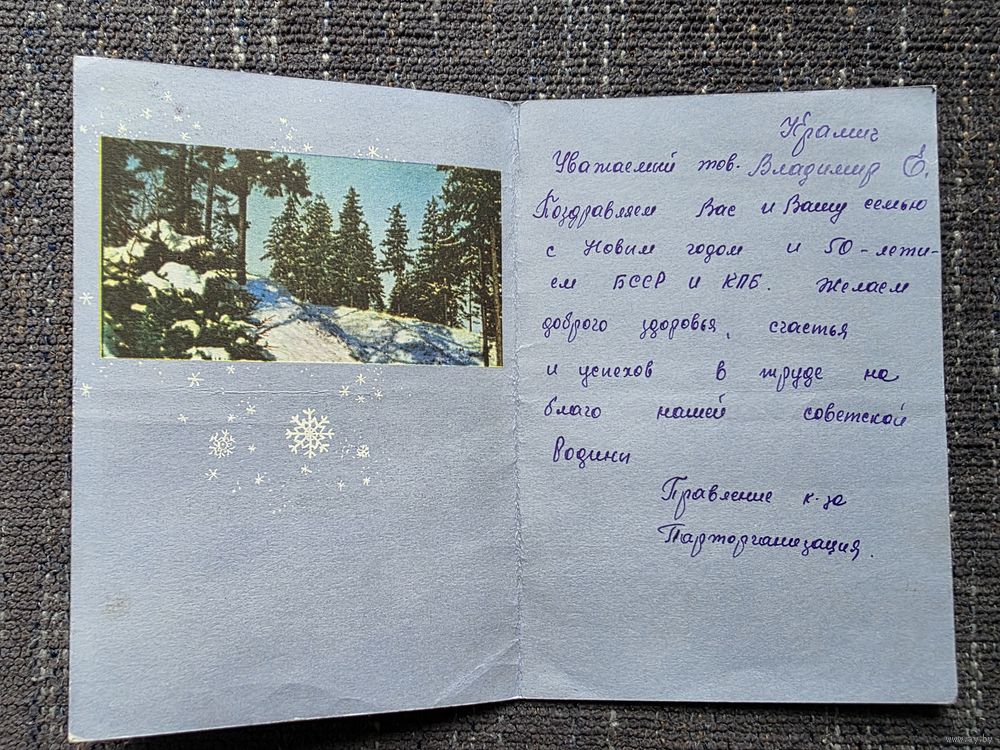 Крамич
Уважаемый тов. Владимир Е.
Поздравляем Вас и Вашу семью
с Новым годом и 50-лети-
ем БССР и КПБ. Желаем
доброго здоровья, счастья
и успехов в труде на
благо нашей советской
Родины
Правление к-за
Парторганизация.
www.ay.by